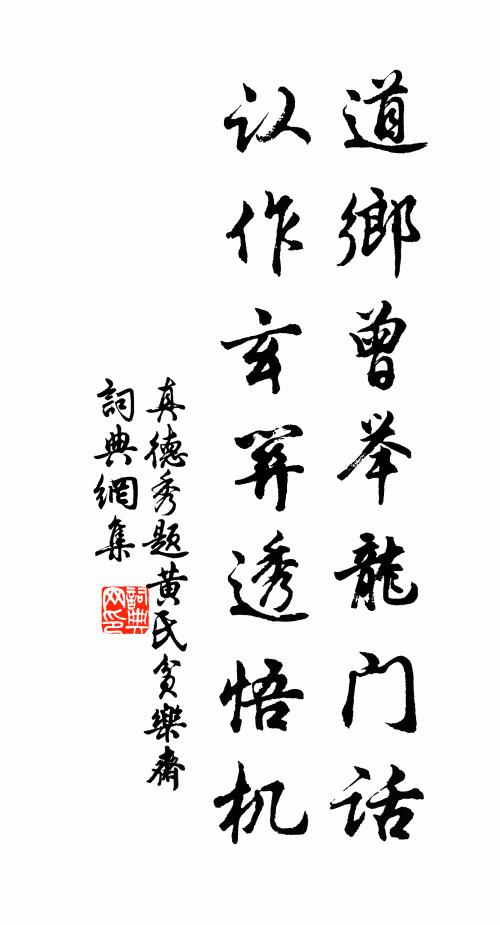 道鄉曾举龍门话
认作玄関透悟机
真德秀题黄氏贫樂齋
詞典網集
詞典
网印